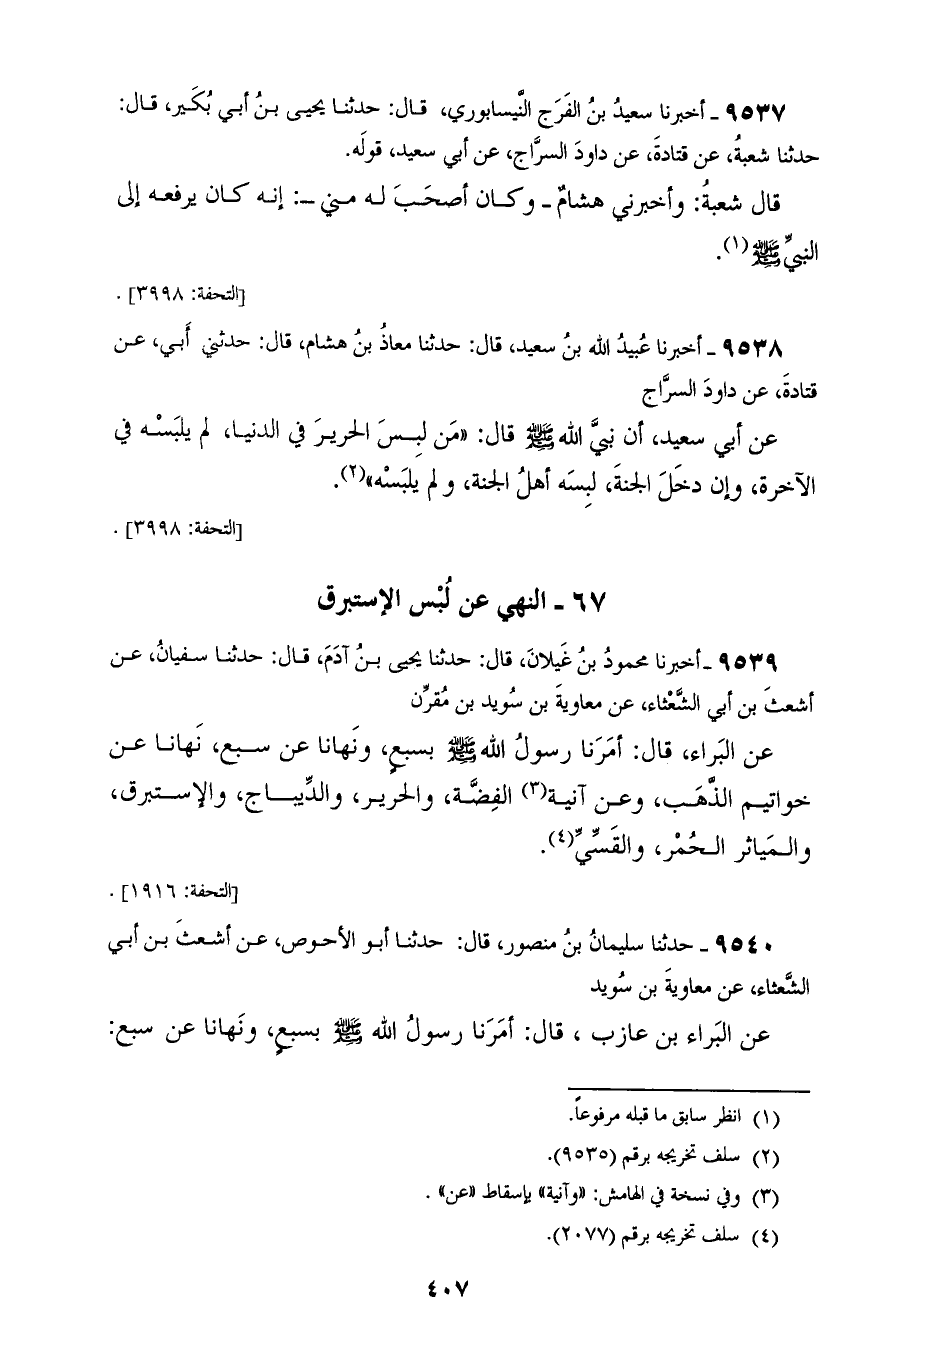 ٩٥٣٧ ـ أخبرنا سعيدُ بنُ الفَرَج النَّيسابوري، قال: حدثنا يحيى بنُ أبي بُكَير، قال:
حدثنا شعبةُ، عن قتادةَ، عن داودَ السرَّاج، عن أبي سعيد، قولَه.
قال شعبةُ: وأخبرني هشامٌ ـ وكان أصحَبَ له مني ـ: إنه كان يرفعه إلى
النبيِّ ﷺ(١).
[التحفة: ٣٩٩٨] .
٩٥٣٨ ـ أخبرنا عُبيدُ الله بنُ سعيد، قال: حدثنا معاذُ بنُ هشام، قال: حدثني أَبي، عن
قتادةَ، عن داودَ السرَّاج
عن أبي سعيد، أن نبيَّ الله ﷺ قال: «مَن لبِسَ الحريرَ في الدنيا، لم يلبَسْه في
الآخرة، وإن دخَلَ الجنةَ، لبِسَه أهلُ الجنة، ولم يلبَسْه»(٢).
[التحفة: ٣٩٩٨] .
٦٧ ـ النهي عن لُبْس الإستبرق
٩٥٣٩ ـ أخبرنا محمودُ بنُ غَيلانَ، قال: حدثنا يحيى بنُ آدَمَ، قال: حدثنا سفيانُ، عن
أشعثَ بن أبي الشَّعْثاء، عن معاويةَ بن سُويد بن مُقرِّن
عن البَراء، قال: أمَرَنا رسولُ الله ﷺ بسبعٍ، ونَهانا عن سبع، نَهانا عن
خواتيم الذَّهَب، وعن آنية(٣) الفِضَّة، والحرير، والدِّيباج، والإستبرق،
والمَياثر الحُمْر، والقَسِّيِّ(٤).
[التحفة: ١٩١٦] .
٩٥٤٠ ـ حدثنا سليمانُ بنُ منصور، قال: حدثنا أبو الأحوص، عن أشعثَ بن أبي
الشَّعثاء، عن معاويةَ بن سُويد
عن البَراء بن عازب ، قال: أمَرَنا رسولُ الله ﷺ بسبعٍ، ونَهانا عن سبع:
(١) انظر سابق ما قبله مرفوعاً.
(٢) سلف تخريجه برقم (٩٥٣٥).
(٣) وفي نسخة في الهامش: «وآنية» بإسقاط «عن» .
(٤) سلف تخريجه برقم (٢٠٧٧).
٤٠٧